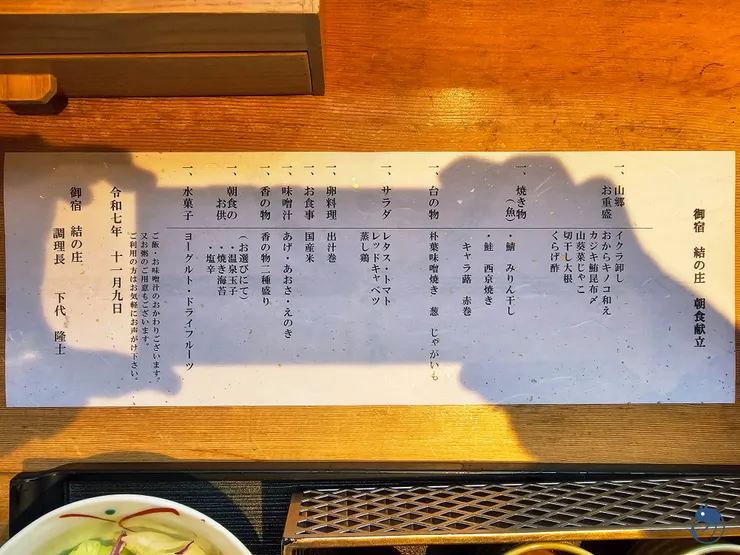 御宿 結の庄 朝食献立
一、山郷お重盛
イクラ卸し
おからキノコ和え
カジキ鮪昆布〆
山葵菜じゃこ
切干し大根
くらげ酢
一、焼き物(魚)
・鯖 みりん干し
・鮭 西京焼き
キャラ蕗 赤巻
一、台の物 朴葉味噌焼き 葱 じゃがいも
一、サラダ レタス・トマト
レッドキャベツ
蒸し鶏
一、卵料理 出汁巻
一、お食事 国産米
一、味噌汁 あげ・あおさ・えのき
一、香の物 香の物二種盛り
一、朝食のお供 (お選びにて)
・温泉玉子
・焼き海苔
・塩辛
一、水菓子 ヨーグルト・ドライフルーツ
ご飯・お味噌汁のおかわりございます。
又お粥のご用意もございます。
ご利用の方はお気軽にお声がけ下さい。
令和七年 十一月九日
御宿 結の庄
調理長 下代 隆士